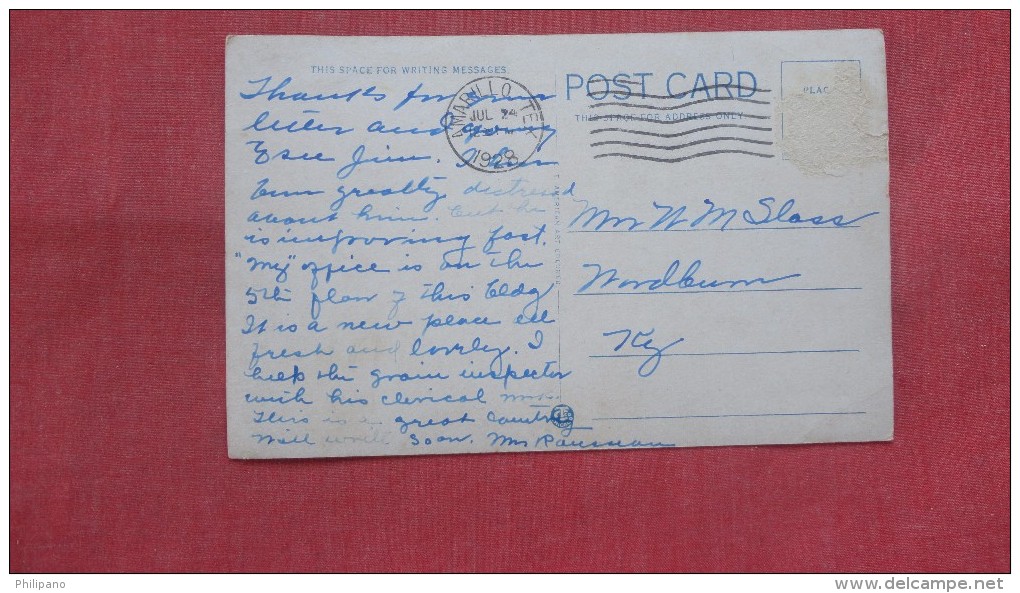 THIS SPACE FOR WRITING MESSAGES
Thanks for your
letter and going
to see Jim. I have
been greatly distressed
about him. but he
is improving fast.
"My" office is on the
5th floor of this bldg
It is a new place all
fresh and lovely. I
help the grain inspector
with his clerical work.
This is a great country
Will write soon. Mrs
POST CARD
THIS SPACE FOR ADDRESS ONLY
PLAC
AMARILLO, TEX
JUL 24
1928
Mrs W M Sloss
Woodburn
Ky
Philipano
www.delcampe.net